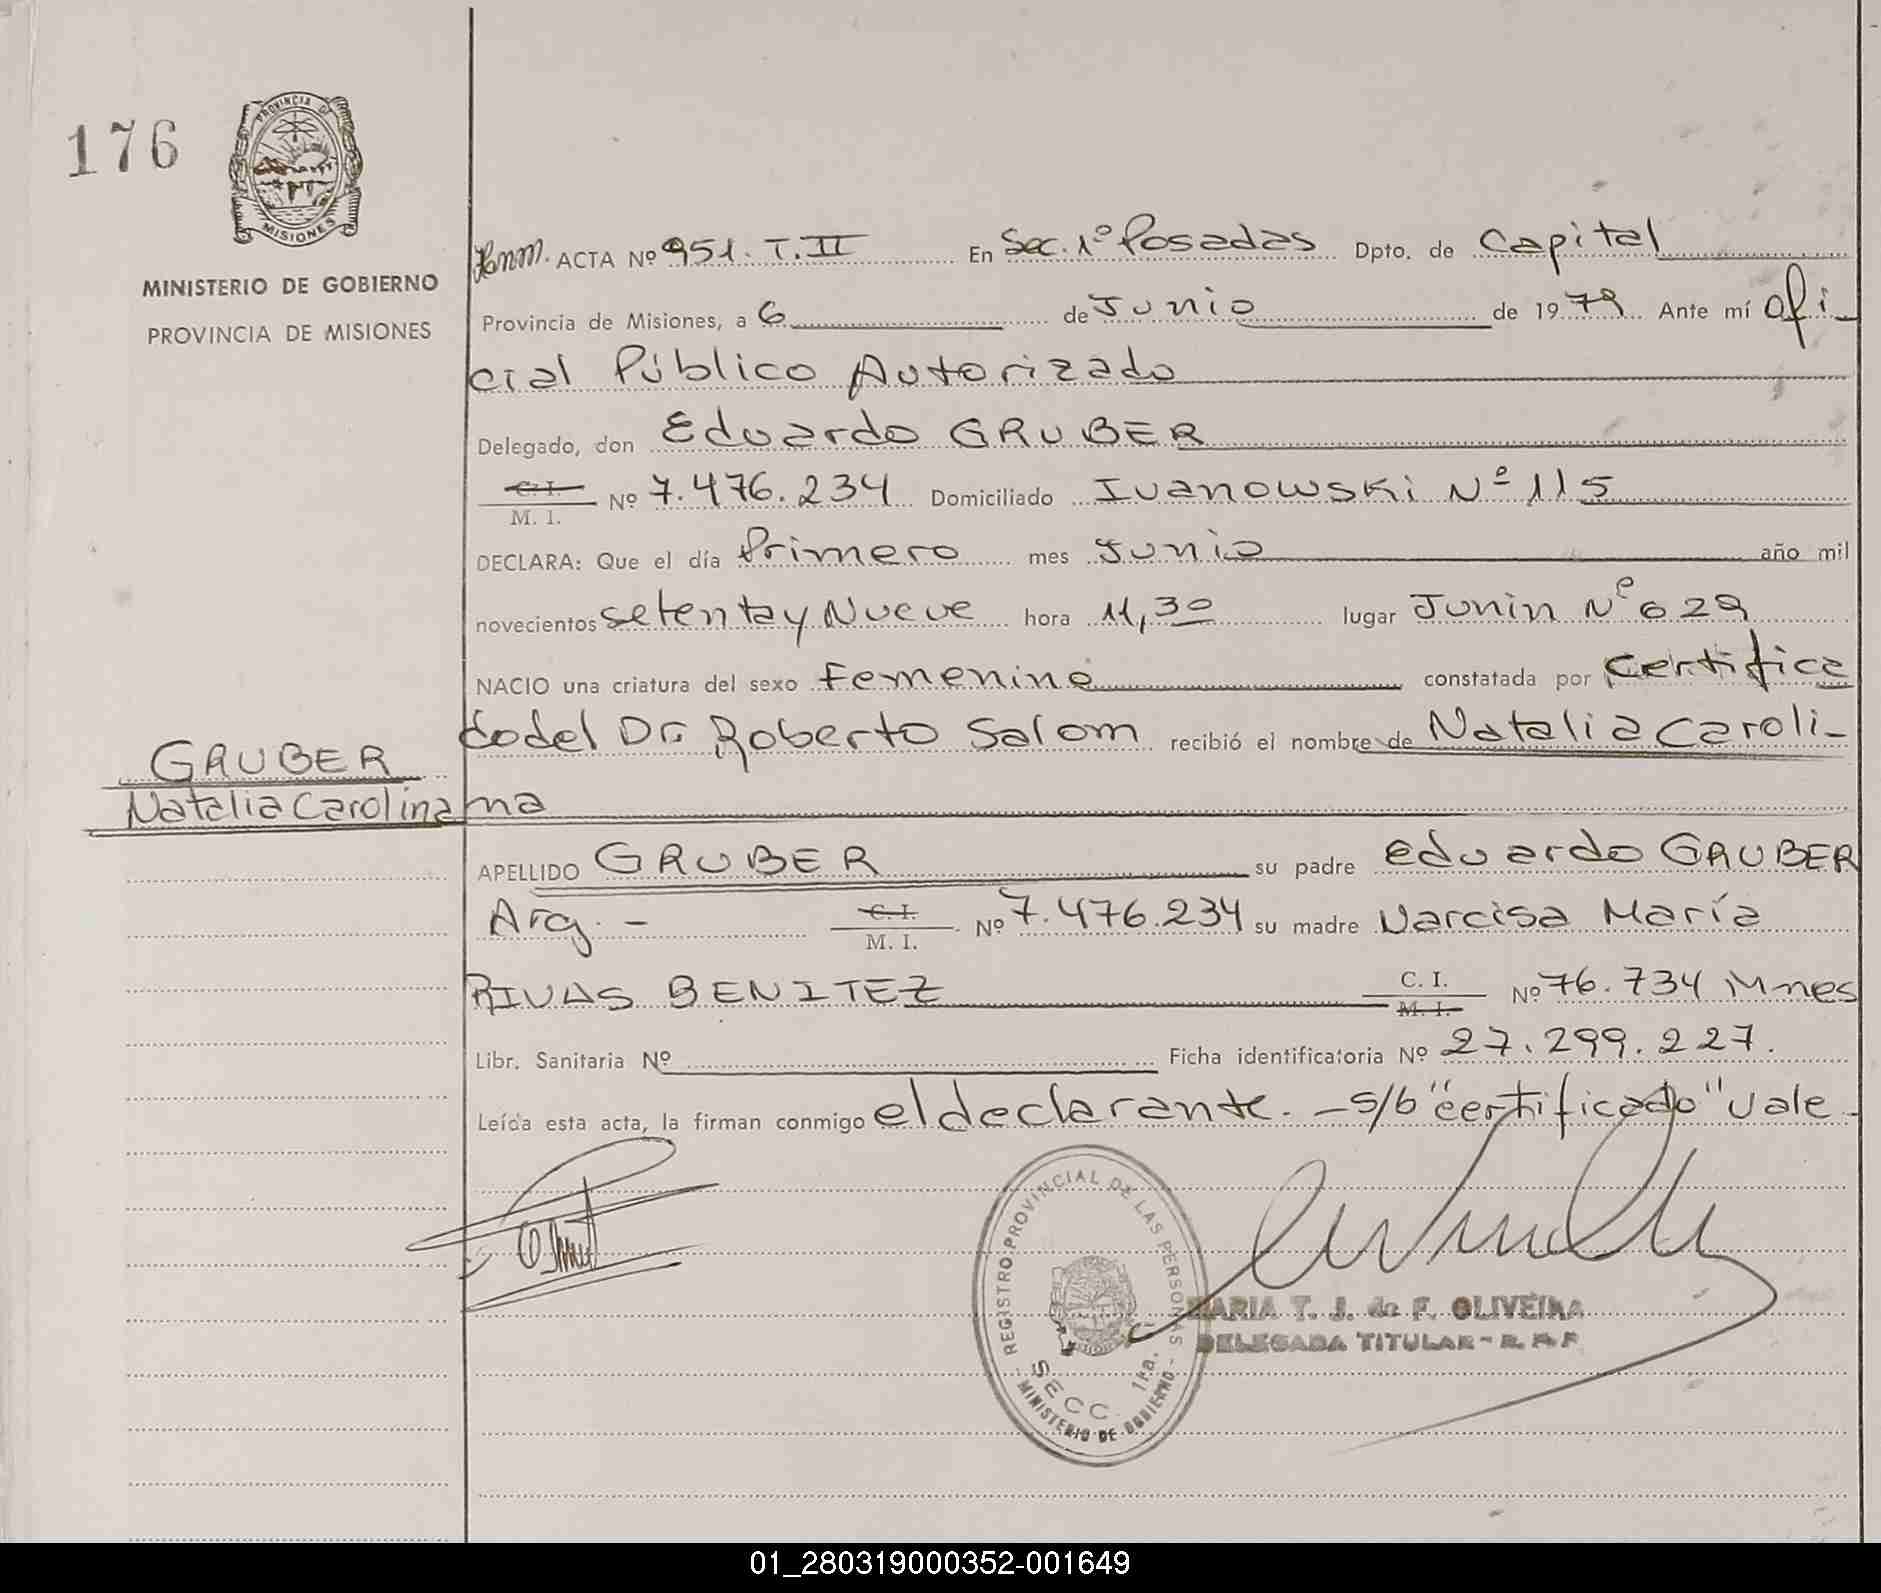 176
PROVINCIA DE
MISIONES
MINISTERIO DE GOBIERNO
PROVINCIA DE MISIONES
ACTA Nº 951. T. II En Sec. 1º Posadas Dpto. de Capital
Provincia de Misiones, a 6 de Junio de 1979 Ante mí ofi-
cial Público Autorizado
Delegado, don Eduardo GRUBER
C. I.
M. I. Nº 7.476.234 Domiciliado Ivanowski Nº 115
DECLARA: Que el día Primero mes Junio año mil
novecientos setenta y Nueve hora 11,30 lugar Junin Nº 629
NACIO una criatura del sexo Femenino constatada por Certifica
do del Dr. Roberto Salom recibió el nombre de Natalia Caroli-
na
GRUBER
Natalia Carolina
APELLIDO GRUBER su padre eduardo GRUBER
Arg. - C. I.
M. I. Nº 7.476.234 su madre Narcisa María
RIVAS BENITEZ C. I.
M. I. Nº 76.734 Mnes
Libr. Sanitaria Nº Ficha identificatoria Nº 27.299.227.
Leída esta acta, la firman conmigo el declarante. - s/b "certificado" vale-
REGISTRO PROVINCIAL DE LAS PERSONAS
SECC. 1ra.
- MINISTERIO DE GOBIERNO -
MARIA T. J. de F. OLIVEIRA
DELEGADA TITULAR - R. P. P.
01_280319000352-001649